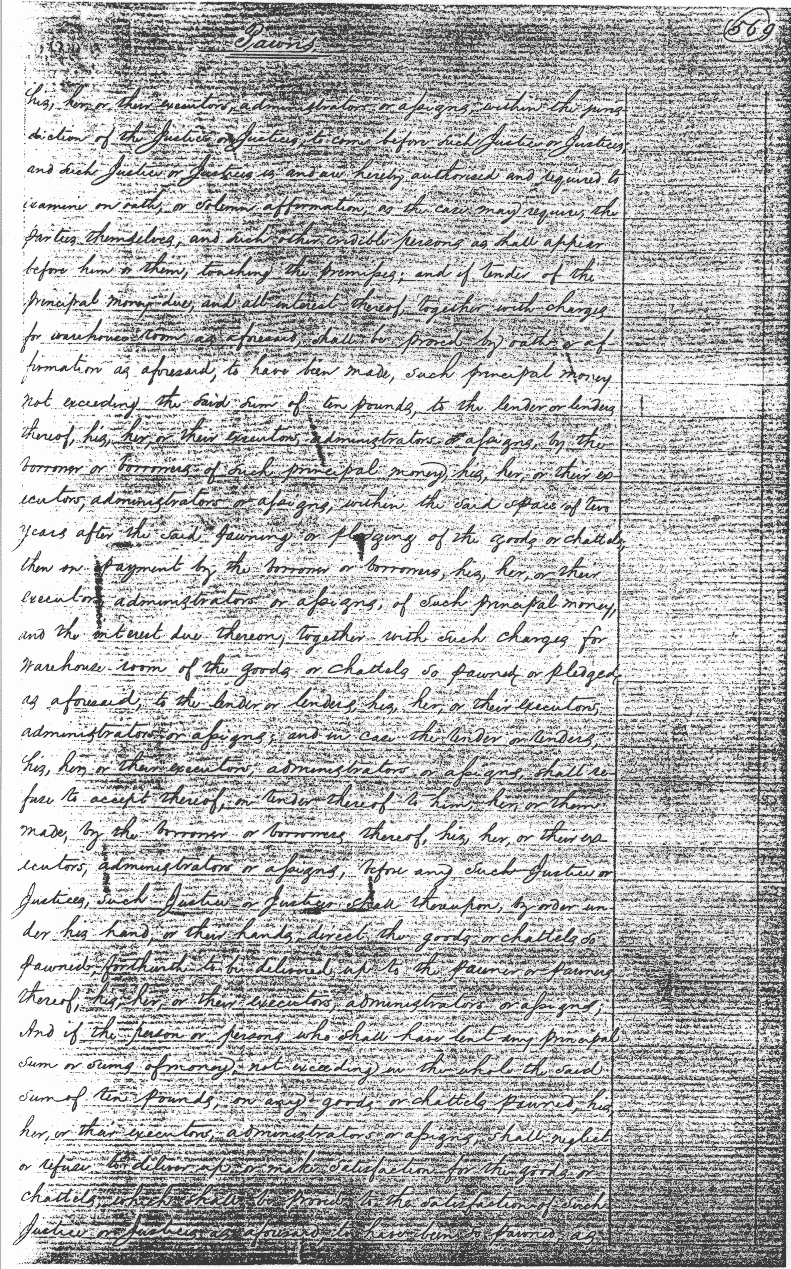 Pawns
569
his, her, or their executors, administrators or assigns, within the juris
diction of the Justice or Justices, to come before such Justice or Justices
and such Justice or Justices is and are hereby authorised and required to
examine on oath, or solemn affirmation, as the case may require, the
parties themselves, and such other credible persons as shall appear
before him or them, touching the premises; and if tender of the
principal money due, and all interest thereof, together with charges
for warehouse room as aforesaid, shall be proved by oath or af
firmation as aforesaid, to have been made, such principal money
not exceeding the said sum of ten pounds, to the lender or lenders
thereof, his, her, or their executors, administrators or assigns, by the
borrower or borrowers of such principal money, his, her, or their ex
ecutors, administrators or assigns, within the said space of two
years after the said pawning or pledging of the goods or chattels,
then on payment by the borrower or borrowers, his, her, or their
executors administrators or assigns, of such principal money,
and the interest due thereon, together with such charges for
warehouse room of the goods or chattels so pawned or pledged
as aforesaid, to the lender or lenders, his, her, or their executors,
administrators or assigns; and in case the lender or lenders,
his, her, or their executors, administrators or assigns, shall re
fuse to accept thereof, on tender thereof to him her, or them
made, by the borrower or borrowers thereof, his, her, or their ex
ecutors, administrators or assigns, before any such Justice or
Justices, such Justice or Justices shall thereupon, by order un
der his hand, or their hands, direct the goods or chattels so
pawned, forthwith to be delivered up to the pawner or pawners
thereof, his, her, or their executors, administrators or assigns;
And if the person or persons who shall have lent any principal
sum or sums of money, not exceeding in the whole the said
sum of ten pounds, on any goods or chattels pawned, his,
her, or their executors, administrators or assigns, shall neglect
or refuse to deliver up or make satisfaction for the goods or
chattels, which shall be proved to the satisfaction of such
Justice or Justices as aforesaid, to have been so pawned, as